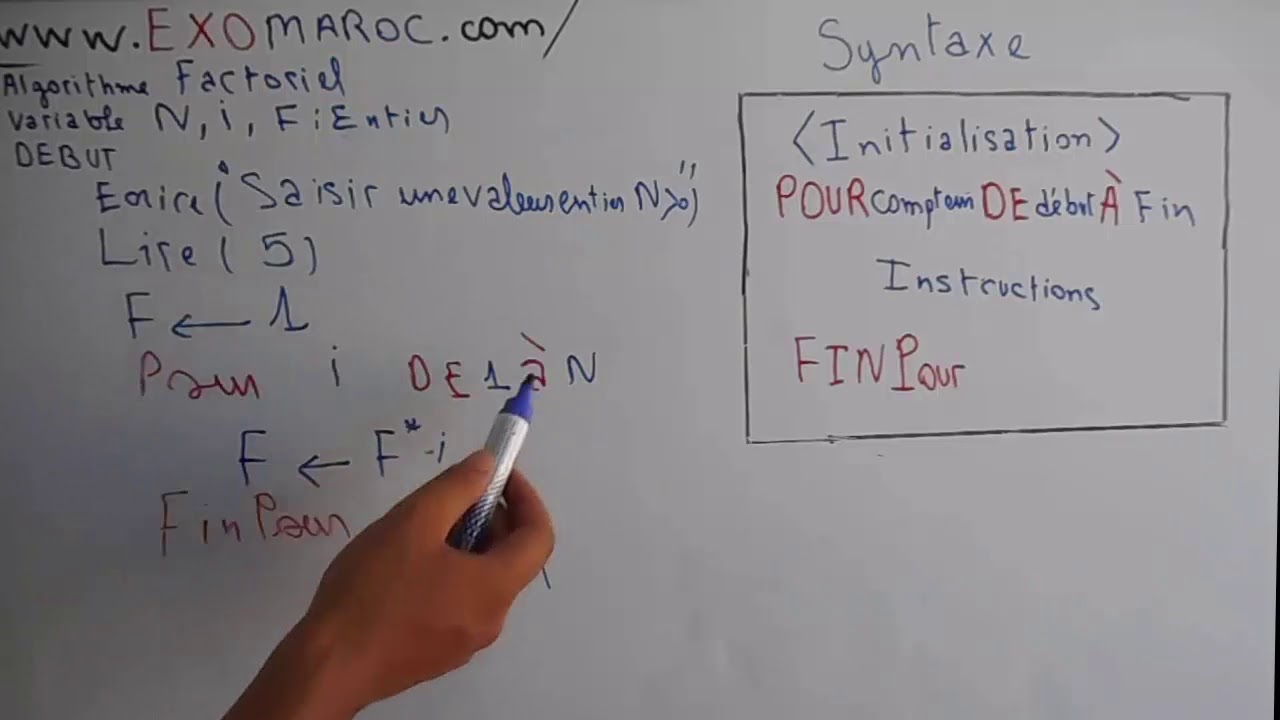 www.EXOMAROC.com/
Algorithme Factoriel
Variable N, i, F : Entier
DEBUT
Ecrire("Saisir une valeur entier N>0")
Lire( 5)
F ← 1
Pour i DE 1 à N
F ← F * i
FinPour
Syntaxe
<Initialisation>
POUR compteur DE début À Fin
Instructions
FINPour